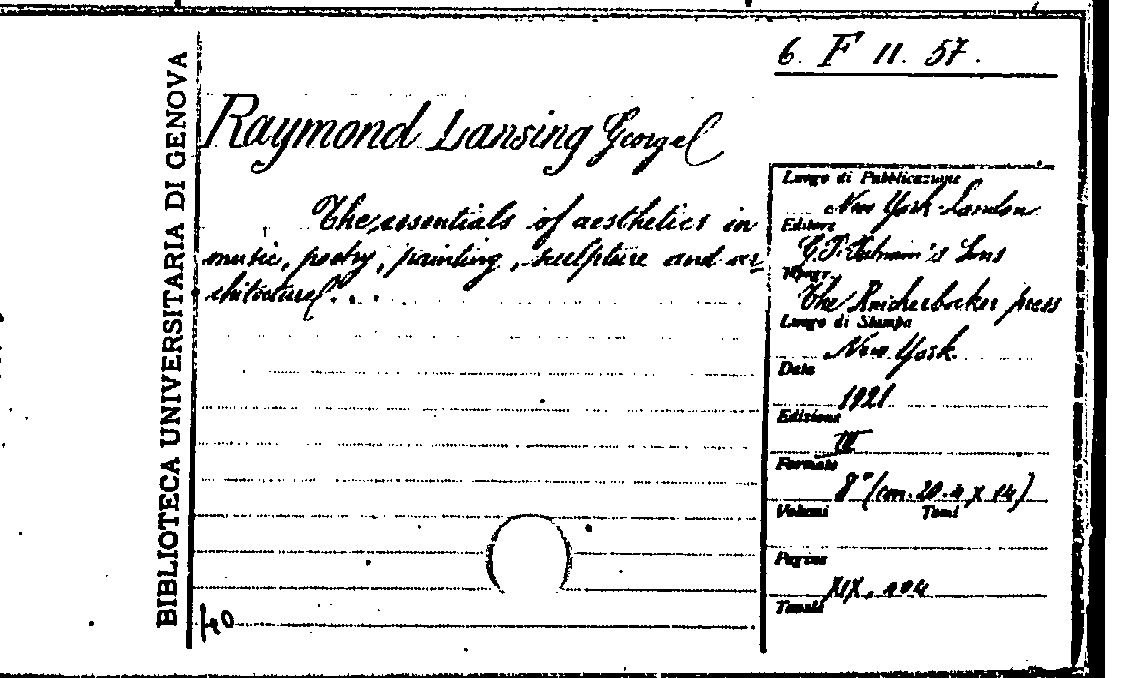 BIBLIOTECA UNIVERSITARIA DI GENOVA
6. F 11. 57.
Raymond Lansing George
The essentials of aesthetics in
music, poetry, painting, sculpture and ar
chitectural...
Luogo di Pubblicazione
New York-London
Editore
G.P. Putnam's Sons
Tipogr.
The Knickerbocker press
Luogo di Stampa
New York.
Data
1921
Edizione
III
Formato
8° (cm. 20. x 14)
Volumi Tomi
Pagine
XIX, 404
Tavole